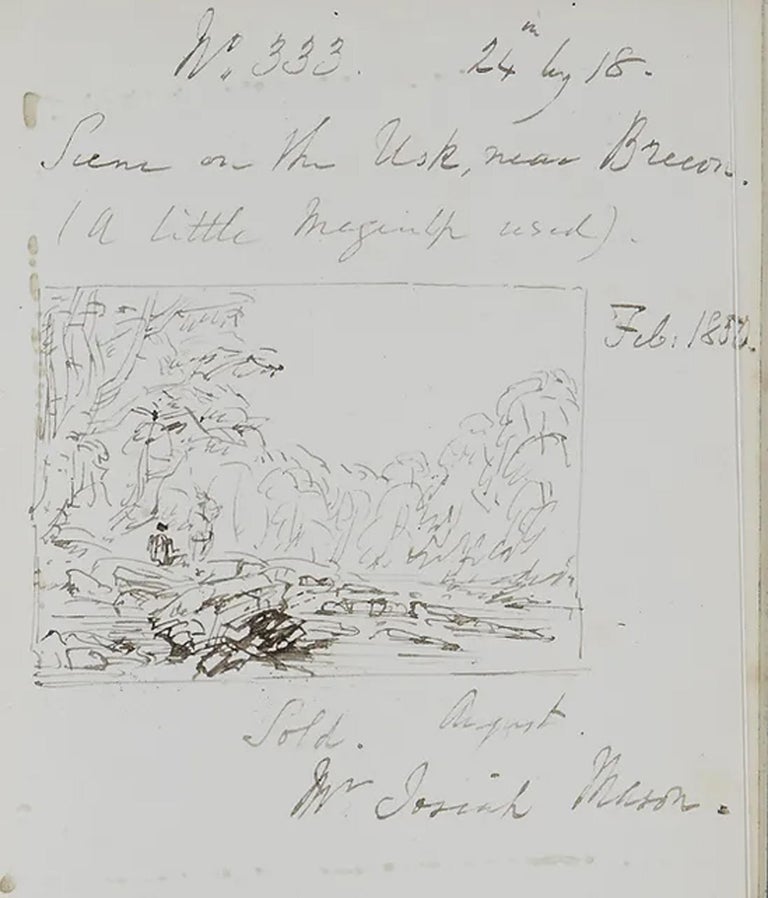 No. 333. 24in by 18.
Scene on the Usk, near Brecon.
(A little Megilp used).
Feb: 
Sold. August.
Mr Josiah Mason.